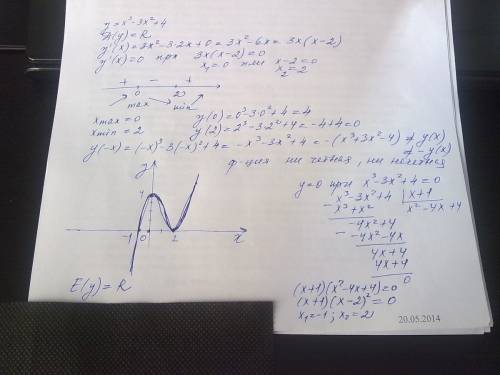 y = x³-3x²+4
D(y) = R
y'(x) = 3x²-3·2x+0 = 3x²-6x = 3x(x-2)
y'(x)=0 при 3x(x-2)=0
x₁=0 или x-2=0
x₂=2
+ - +
0 2 x
max min
xmax = 0 y(0) = 0³-3·0²+4 = 4
xmin = 2 y(2) = 2³-3·2²+4 = -4+4=0
y(-x) = (-x)³-3(-x)²+4 = -x³-3x²+4 = -(x³+3x²-4) ≠ y(x)
≠ -y(x)
ф-ция ни четная, ни нечетная
y
4
-1 0 2 x
E(y) = R
y=0 при x³-3x²+4=0
x³-3x²+4 | x+1
x³+x² x²-4x+4
-4x²+4
-4x²-4x
4x+4
4x+4
0
(x+1)(x²-4x+4)=0
(x+1)(x-2)²=0
x₁=-1; x₂=2
20.05.2014